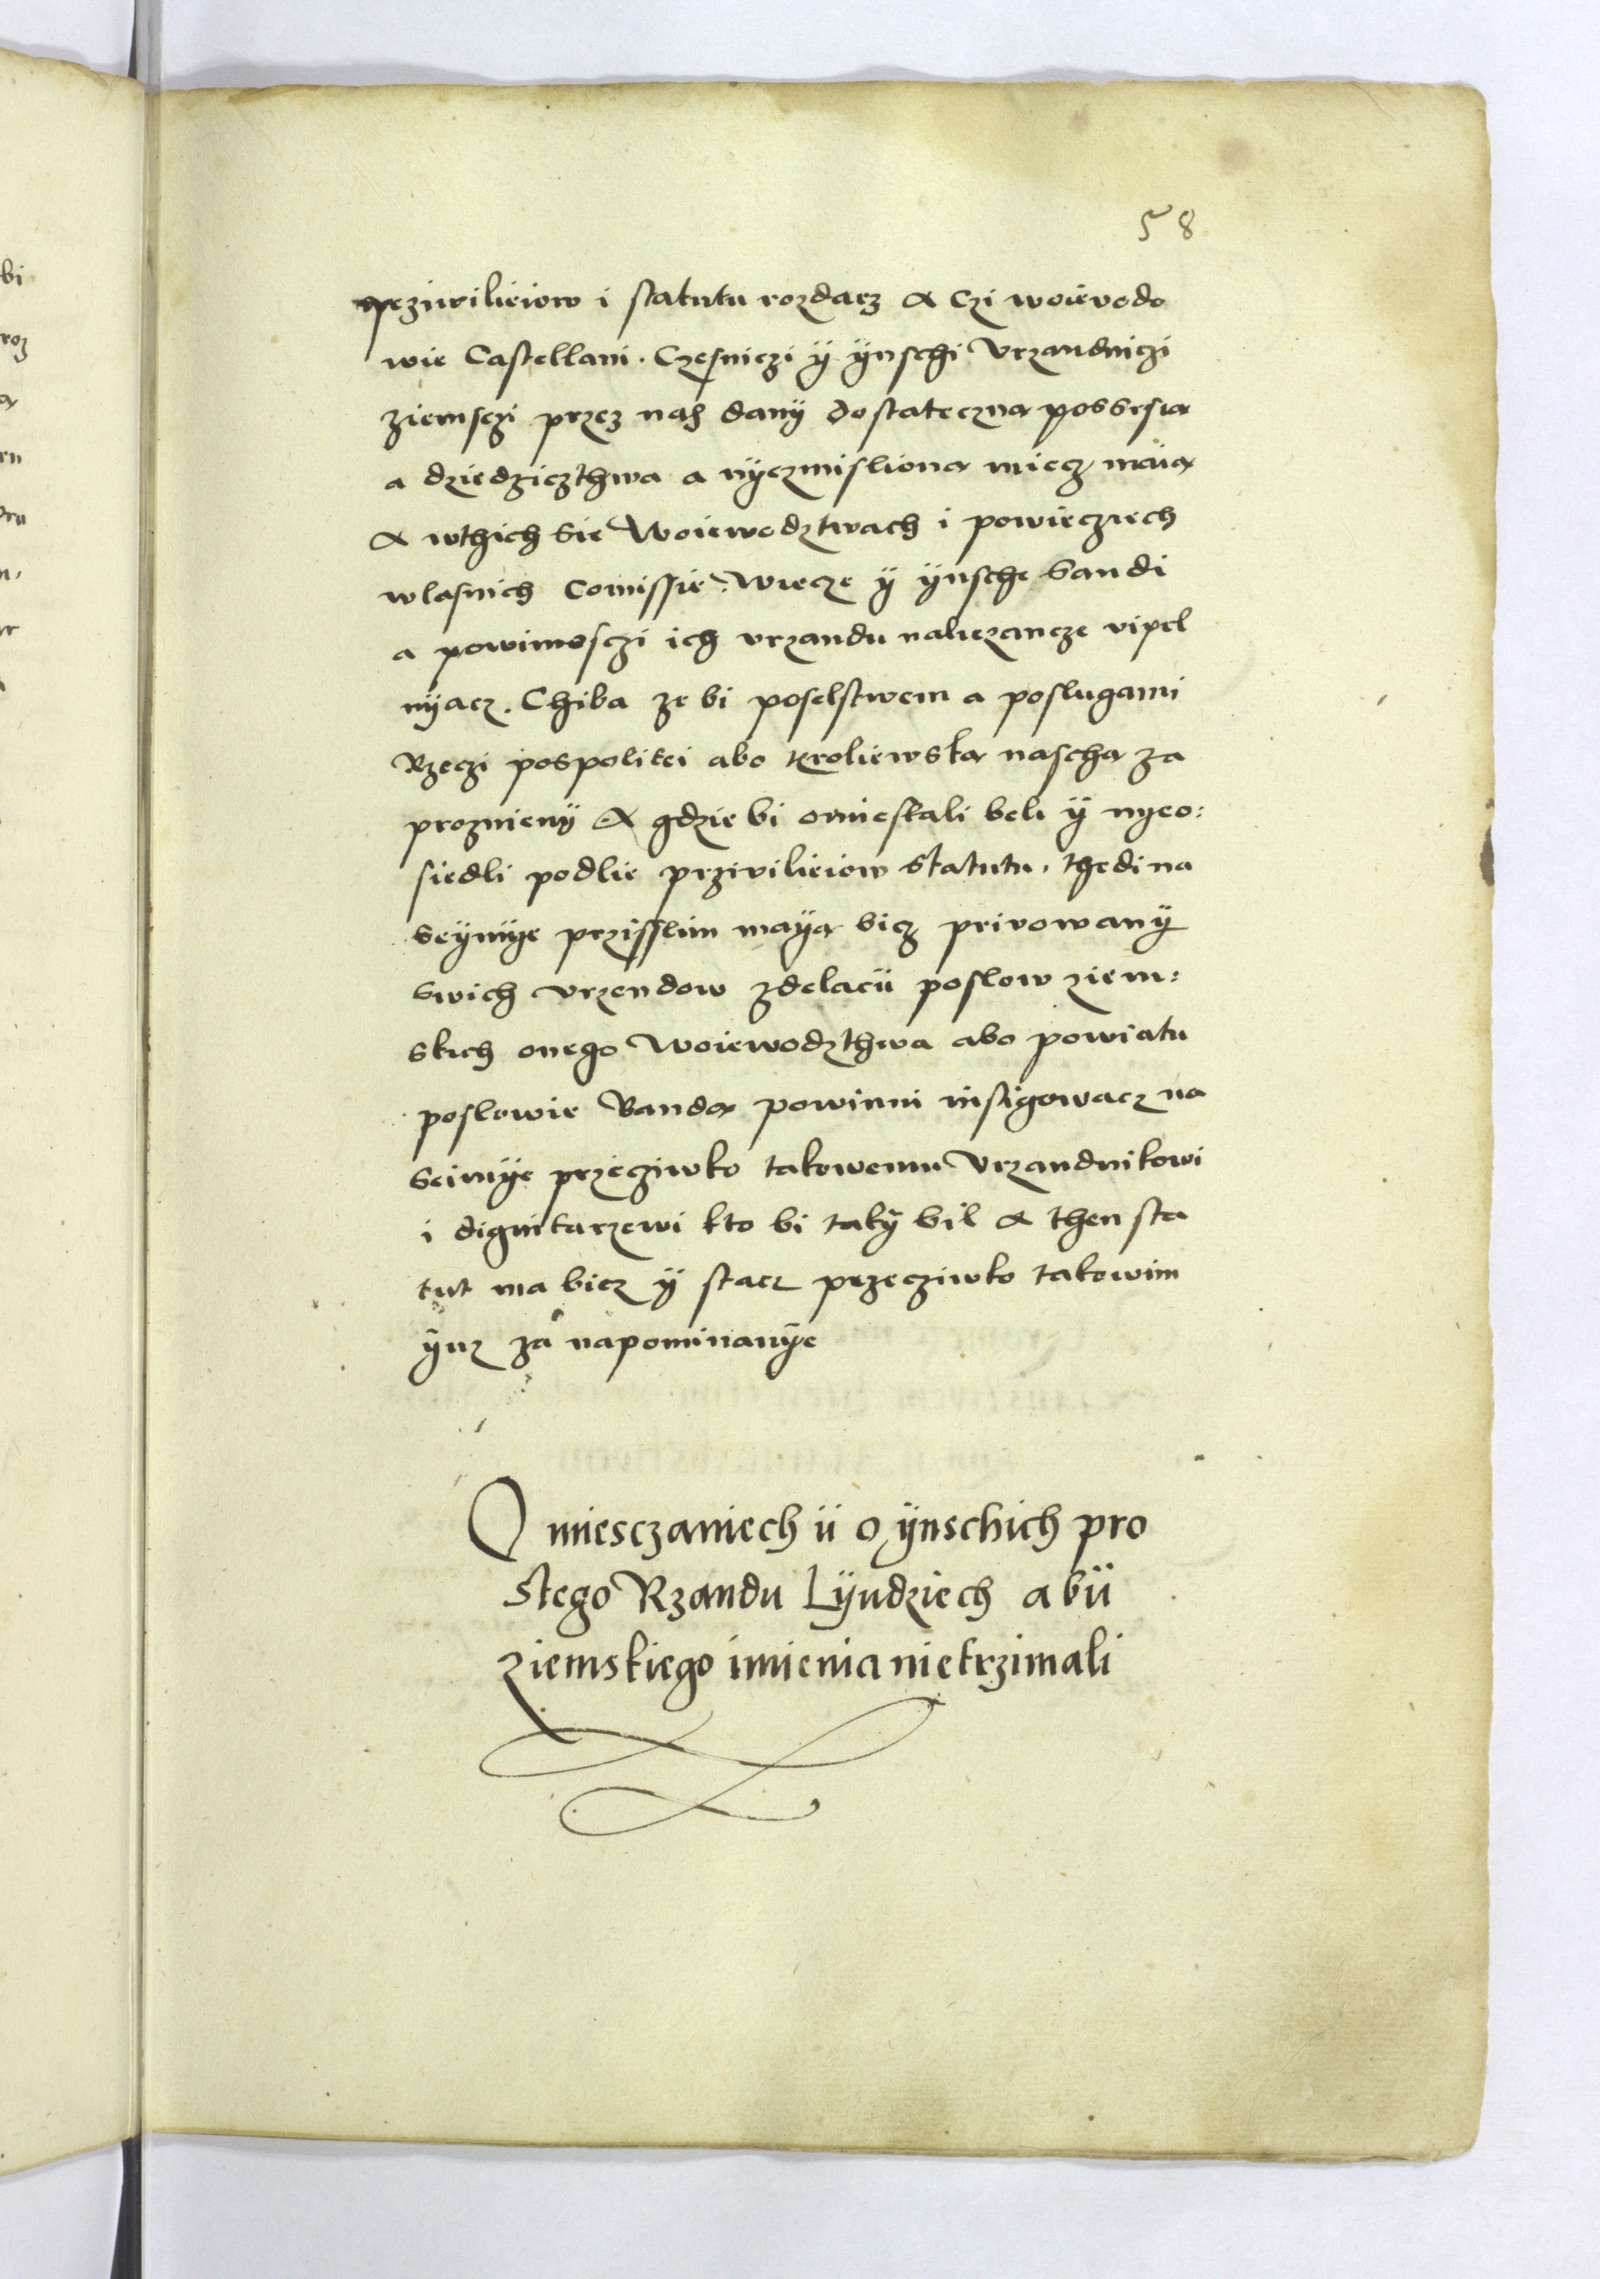 58
przivilieiow i statutu rozdacz & Czi woievodo
wie Castellani. Czesniczi ÿ ÿnschi Vrzandniczi
ziemsczi przez nas danÿ dostateczna possesia
a dziedzicztgwa a nÿezmisliona miecz maia
& wthich sie Woiewodztwach i powieczech
wlasnich Comissie. Wiecze ÿ ÿnsche sandi
a powinosczi ich vrzandu naliezancze vipel
nÿacz. Chiba ze bi poselstwem a poslugami
Rzeczi pospolitei abo kroliewska nascha za
proznienÿ & gdzie bi omieskali beli ÿ nyeo:
siedli podlie przivilieiow statutu, thedi na
seÿmÿe przisslim maÿa bicz privowanÿ
swich vrzendow zdelacii poslow ziem:
skich onego Woiewodzthwa abo powiatu
poslowie Banda powinni instigowacz na
seimÿe przecziwko takowemu Vrzandnikowi
i dignitarzewi kto bi takÿ bil & then sta
tut ma bicz ÿ stacz przecziwko takowim
ÿuz za napominanÿe
O miesczaniech ii o ÿnschich pro
stego Rzandu Lÿudziech abÿ
ziemskiego imienia nietrzimali
bi
roz